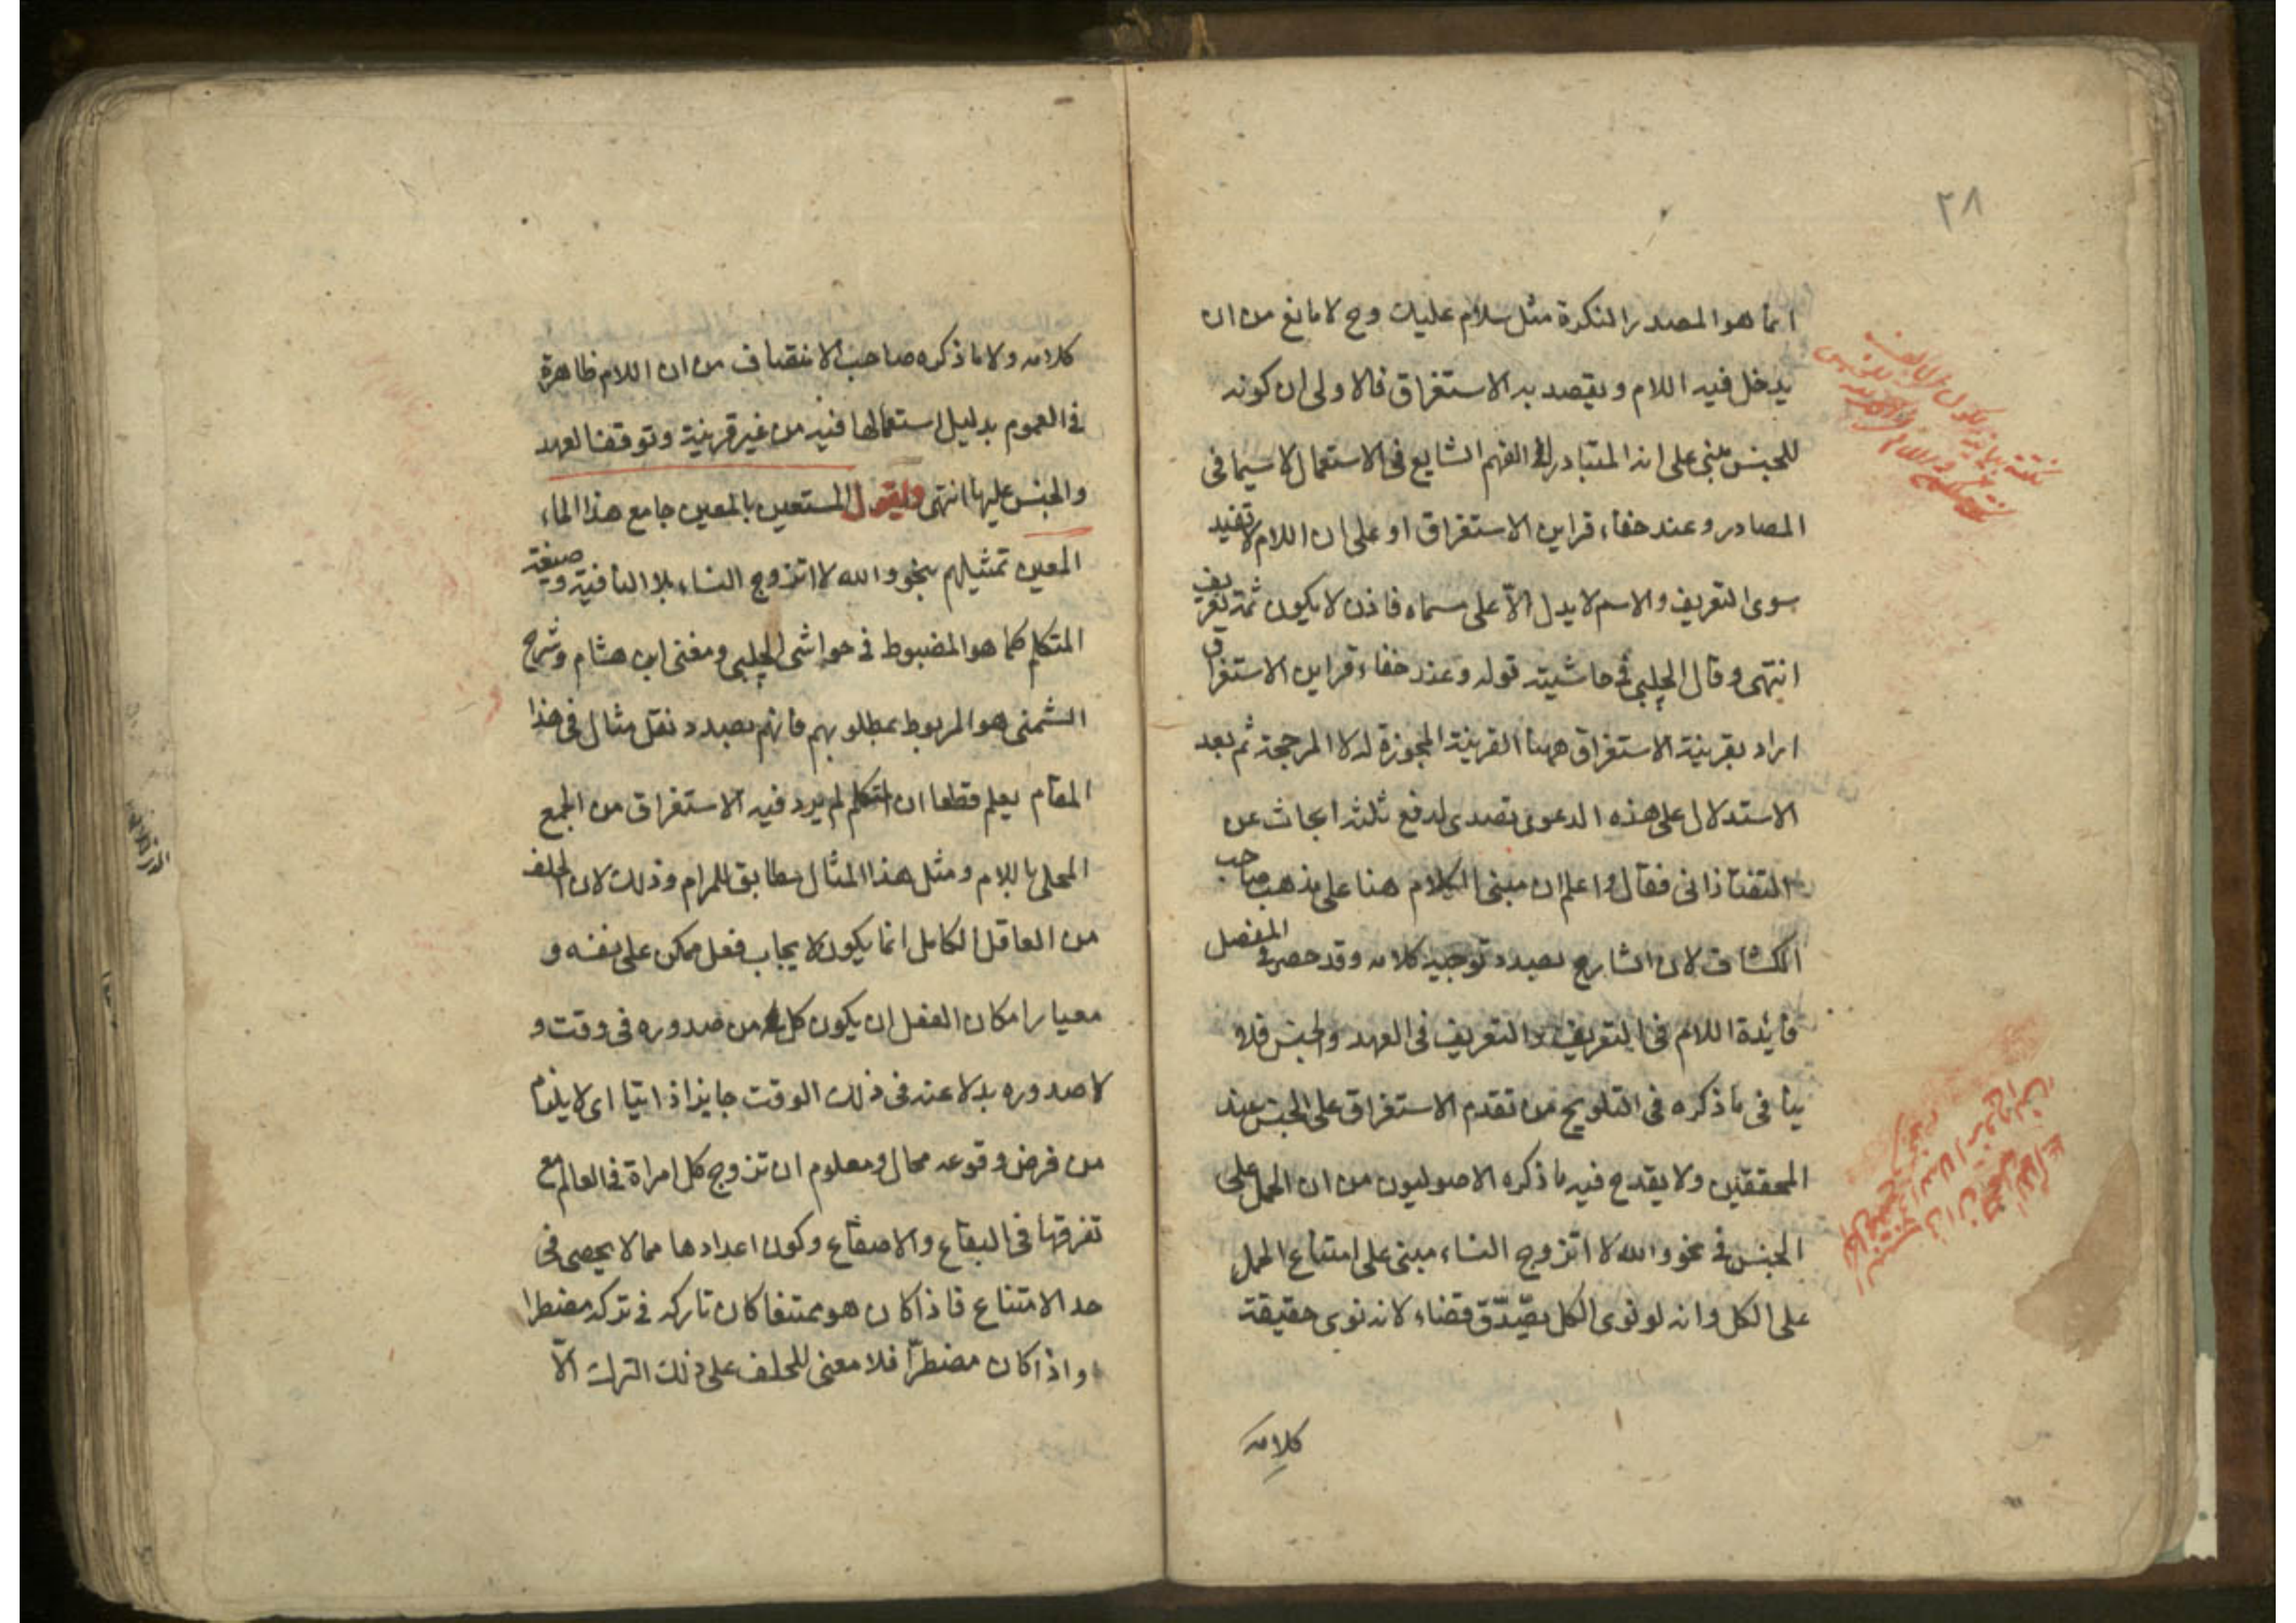 ٢٨
انما هو المصدر النكرة مثل سلام عليك وح لا مانع من ان
يدخل فيه اللام ويقصد به الاستغراق فالاولى ان كونه
للجنس مبنى على انه المتبادر الى الفهم الشايع فى الاستعمال لا سيما فى
المصادر وعند خفاء قراين الاستغراق او على ان اللام لا تفيد
سوى التعريف والاسم لا يدل الاّ على مسماه فاذن لا يكون ثمة تعريف
انتهى وقال الچلبى فى حاشيته قوله وعند خفاء قراين الاستغراق
اراد بقرينة الاستغراق ههنا القرينة المجوزة له لا المرجحة ثم بعد
الاستدلال على هذه الدعوى تصدى لدفع ثلثة ابحاث عن
التفتازانى فقال واعلم ان مبنى الكلام هنا على مذهب صاحب
الكشاف لان الشارح بصدد توجيه كلامه وقد حصر فى المفصل
فايدة اللام فى التعريف والتعريف فى العهد والجنس فلا
ينافى ما ذكره فى التلويح من تقدم الاستغراق على الجنس عند
المحققين ولا يقدح فيه ما ذكره الاصوليون من ان الحمل على
الجنس فى نحو والله لا اتزوج النساء مبنى على امتناع الحمل
على الكل وانه لو نوى الكل يصدّق قضاء لانه نوى حقيقة
كلامه
كلامه ولا ما ذكره صاحب الانتصاف من ان اللام ظاهرة
فى العموم بدليل استعمالها فيه من غير قرينة وتوقف العهد
والجنس عليها انتهى ويقول المستعين بالمعين جامع هذا الماء
المعين تمثيلهم بنحو والله لا اتزوج النساء بلا النافية وصيغة
المتكلم كما هو المضبوط فى حواشى الچلبى ومغنى ابن هشام وشرح
الشمنى هو المربوط بمطلوبهم فانهم بصدد نقل مثال فى هذا
المقام يعلم قطعا ان المتكلم لم يرد فيه الاستغراق من الجمع
المحلى باللام ومثل هذا المثال مطابق للمرام وذلك لان الحلف
من العاقل الكامل انما يكون لايجاب فعل ممكن على نفسه و
معيار امكان الفعل ان يكون كل من صدوره فى وقت و
لا صدوره بدلا عنه فى ذلك الوقت جايزا ذاتيا اى لا يلزم
من فرض وقوعه محال ومعلوم ان تزوج كل امراة فى العالم مع
تفرقها فى البقاع والاصقاع وكون اعدادها مما لا يحصى فى
حد الامتناع فاذا كان هو ممتنعا كان تاركه فى تركه مضطرا
واذا كان مضطرّا فلا معنى للحلف على ذلك الترك الاّ